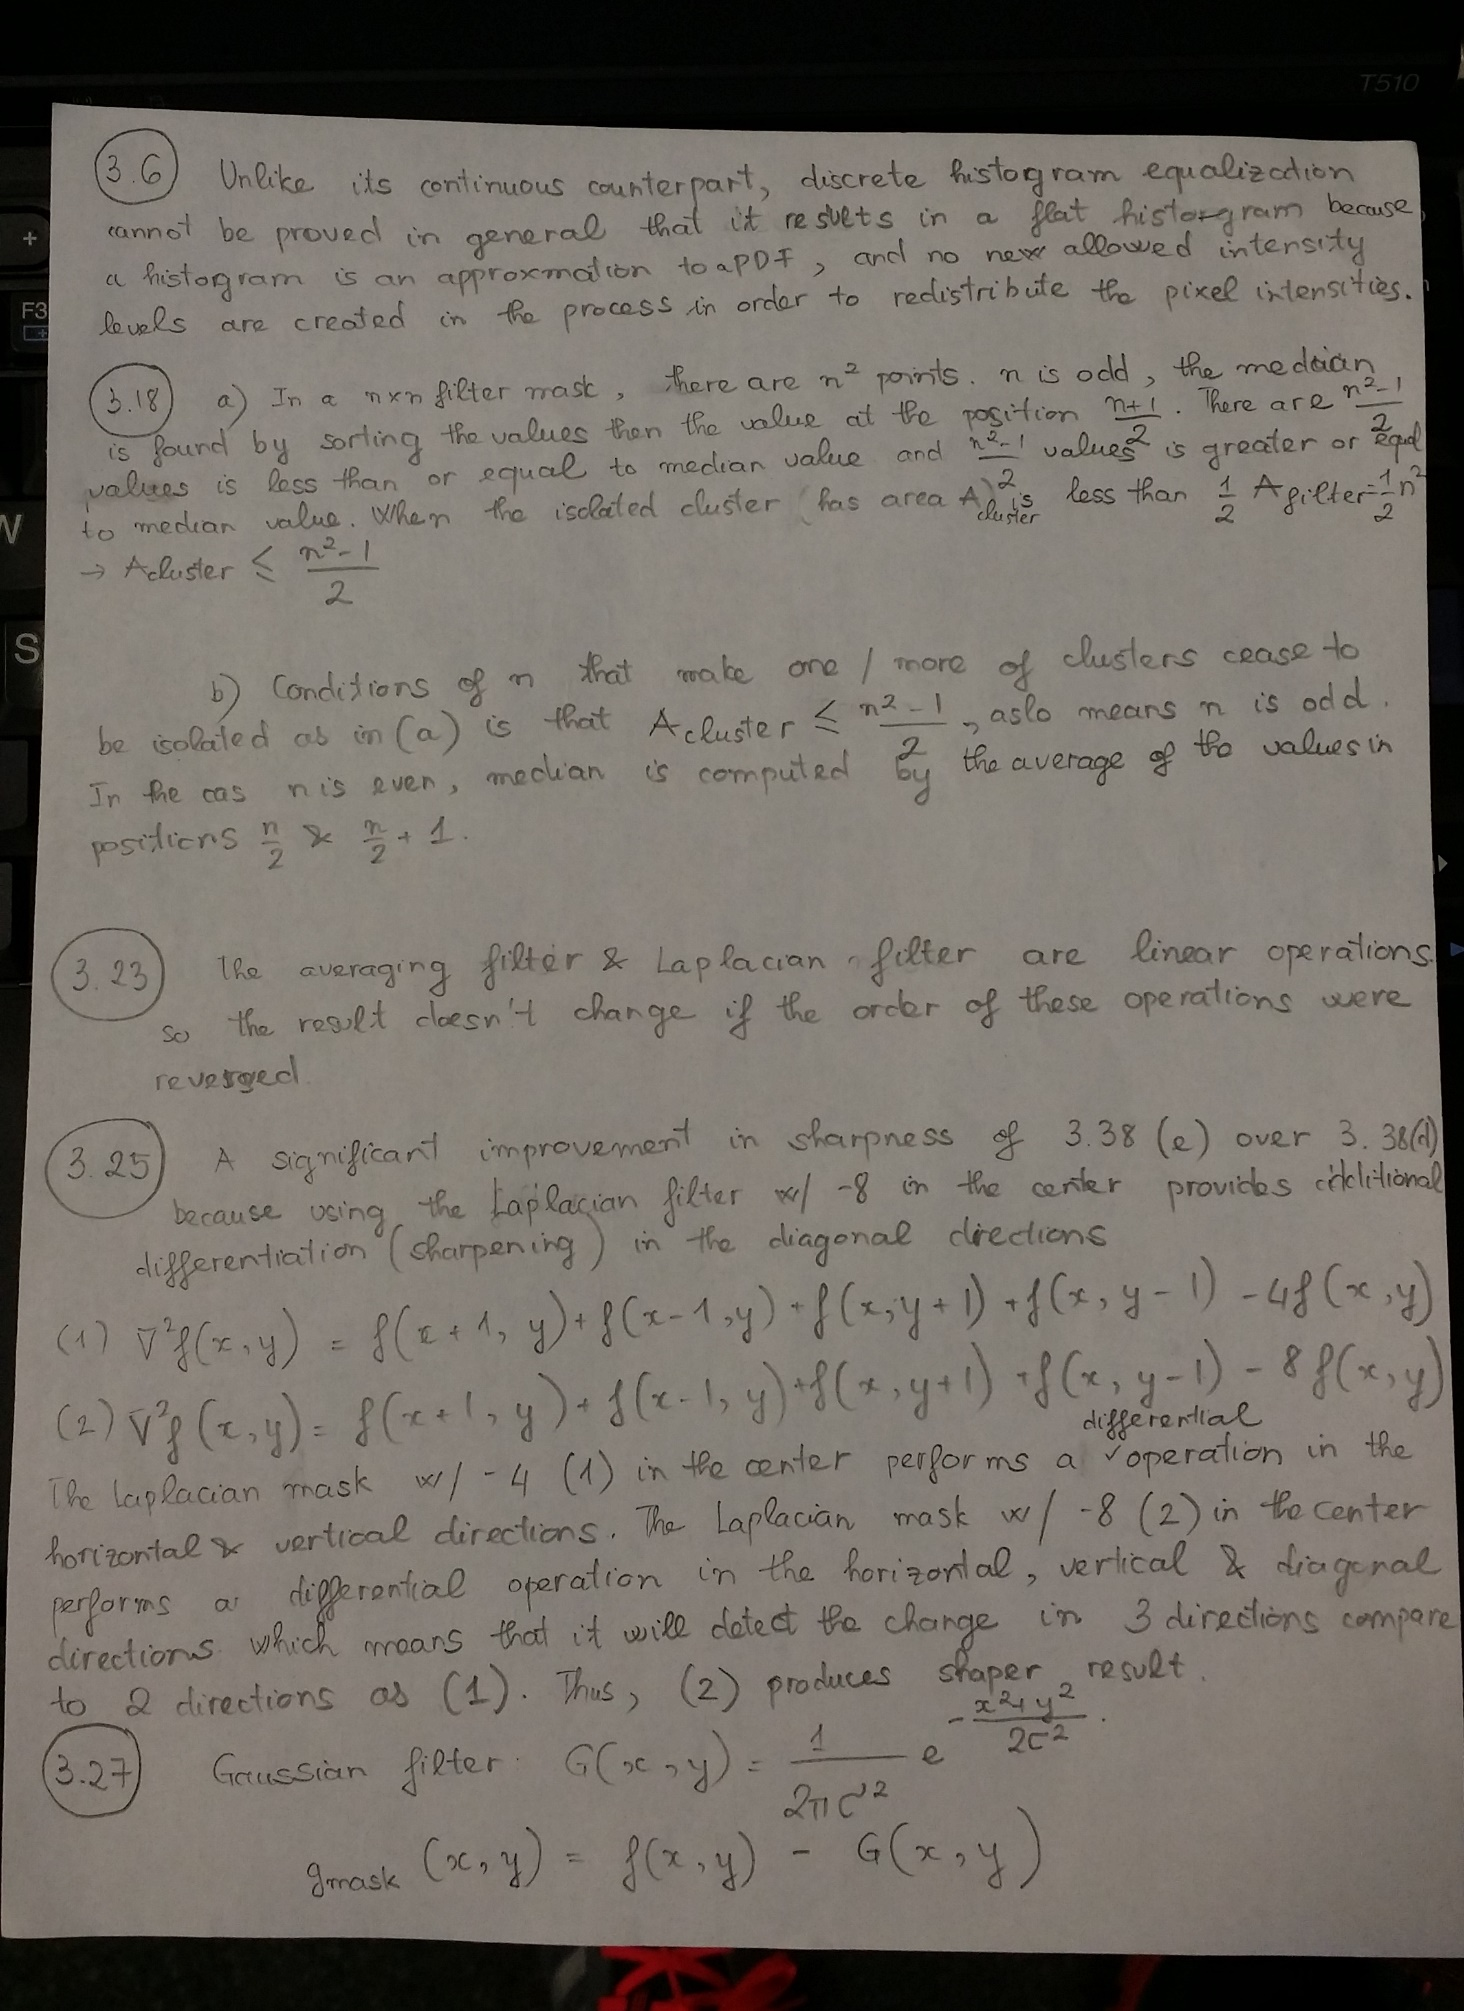 T510
+
F3
W
S
3.6 Unlike its continuous counterpart, discrete histogram equalization
cannot be proved in general that it results in a flat histogram because
a histogram is an approxmation to a PDF, and no new allowed intensity
levels are created in the process in order to redistribute the pixel intensities.
3.18 a) In a n×n filter mask, there are n² points. n is odd, the median
is found by sorting the values then the value at the position (n+1)/2. There are (n²-1)/2
values is less than or equal to median value and (n²-1)/2 values is greater or equal
to median value. When the isolated cluster (has area A cluster) is less than 1/2 A filter = 1/2 n²
→ Acluster ≤ (n²-1)/2
b) Conditions of n that make one / more of clusters cease to
be isolated as in (a) is that Acluster ≤ (n²-1)/2, aslo means n is odd.
In the cas n is even, median is computed by the average of the values in
positions n/2 & n/2 + 1.
3.23 The averaging filter & Laplacian filter are linear operations.
so the result doesn't change if the order of these operations were
reversed
3.25 A significant improvement in sharpness of 3.38 (e) over 3.38(d)
because using the Laplacian filter w/ -8 in the center provides additional
differentiation (sharpening) in the diagonal directions
(1) ∇²f(x,y) = f(x+1, y) + f(x-1,y) + f(x,y+1) + f(x, y-1) - 4f(x,y)
(2) ∇²f(x,y) = f(x+1, y) + f(x-1, y) + f(x,y+1) + f(x, y-1) - 8f(x,y)
The Laplacian mask w/ -4 (1) in the center performs a differential operation in the
horizontal & vertical directions. The Laplacian mask w/ -8 (2) in the center
performs a differential operation in the horizontal, vertical & diagonal
directions which means that it will detect the change in 3 directions compare
to 2 directions as (1). Thus, (2) produces shaper result.
3.27 Gaussian filter: G(x,y) = 1/(2πσ²) e^(-(x²+y²)/(2σ²)).
gmask (x,y) = f(x,y) - G(x,y)